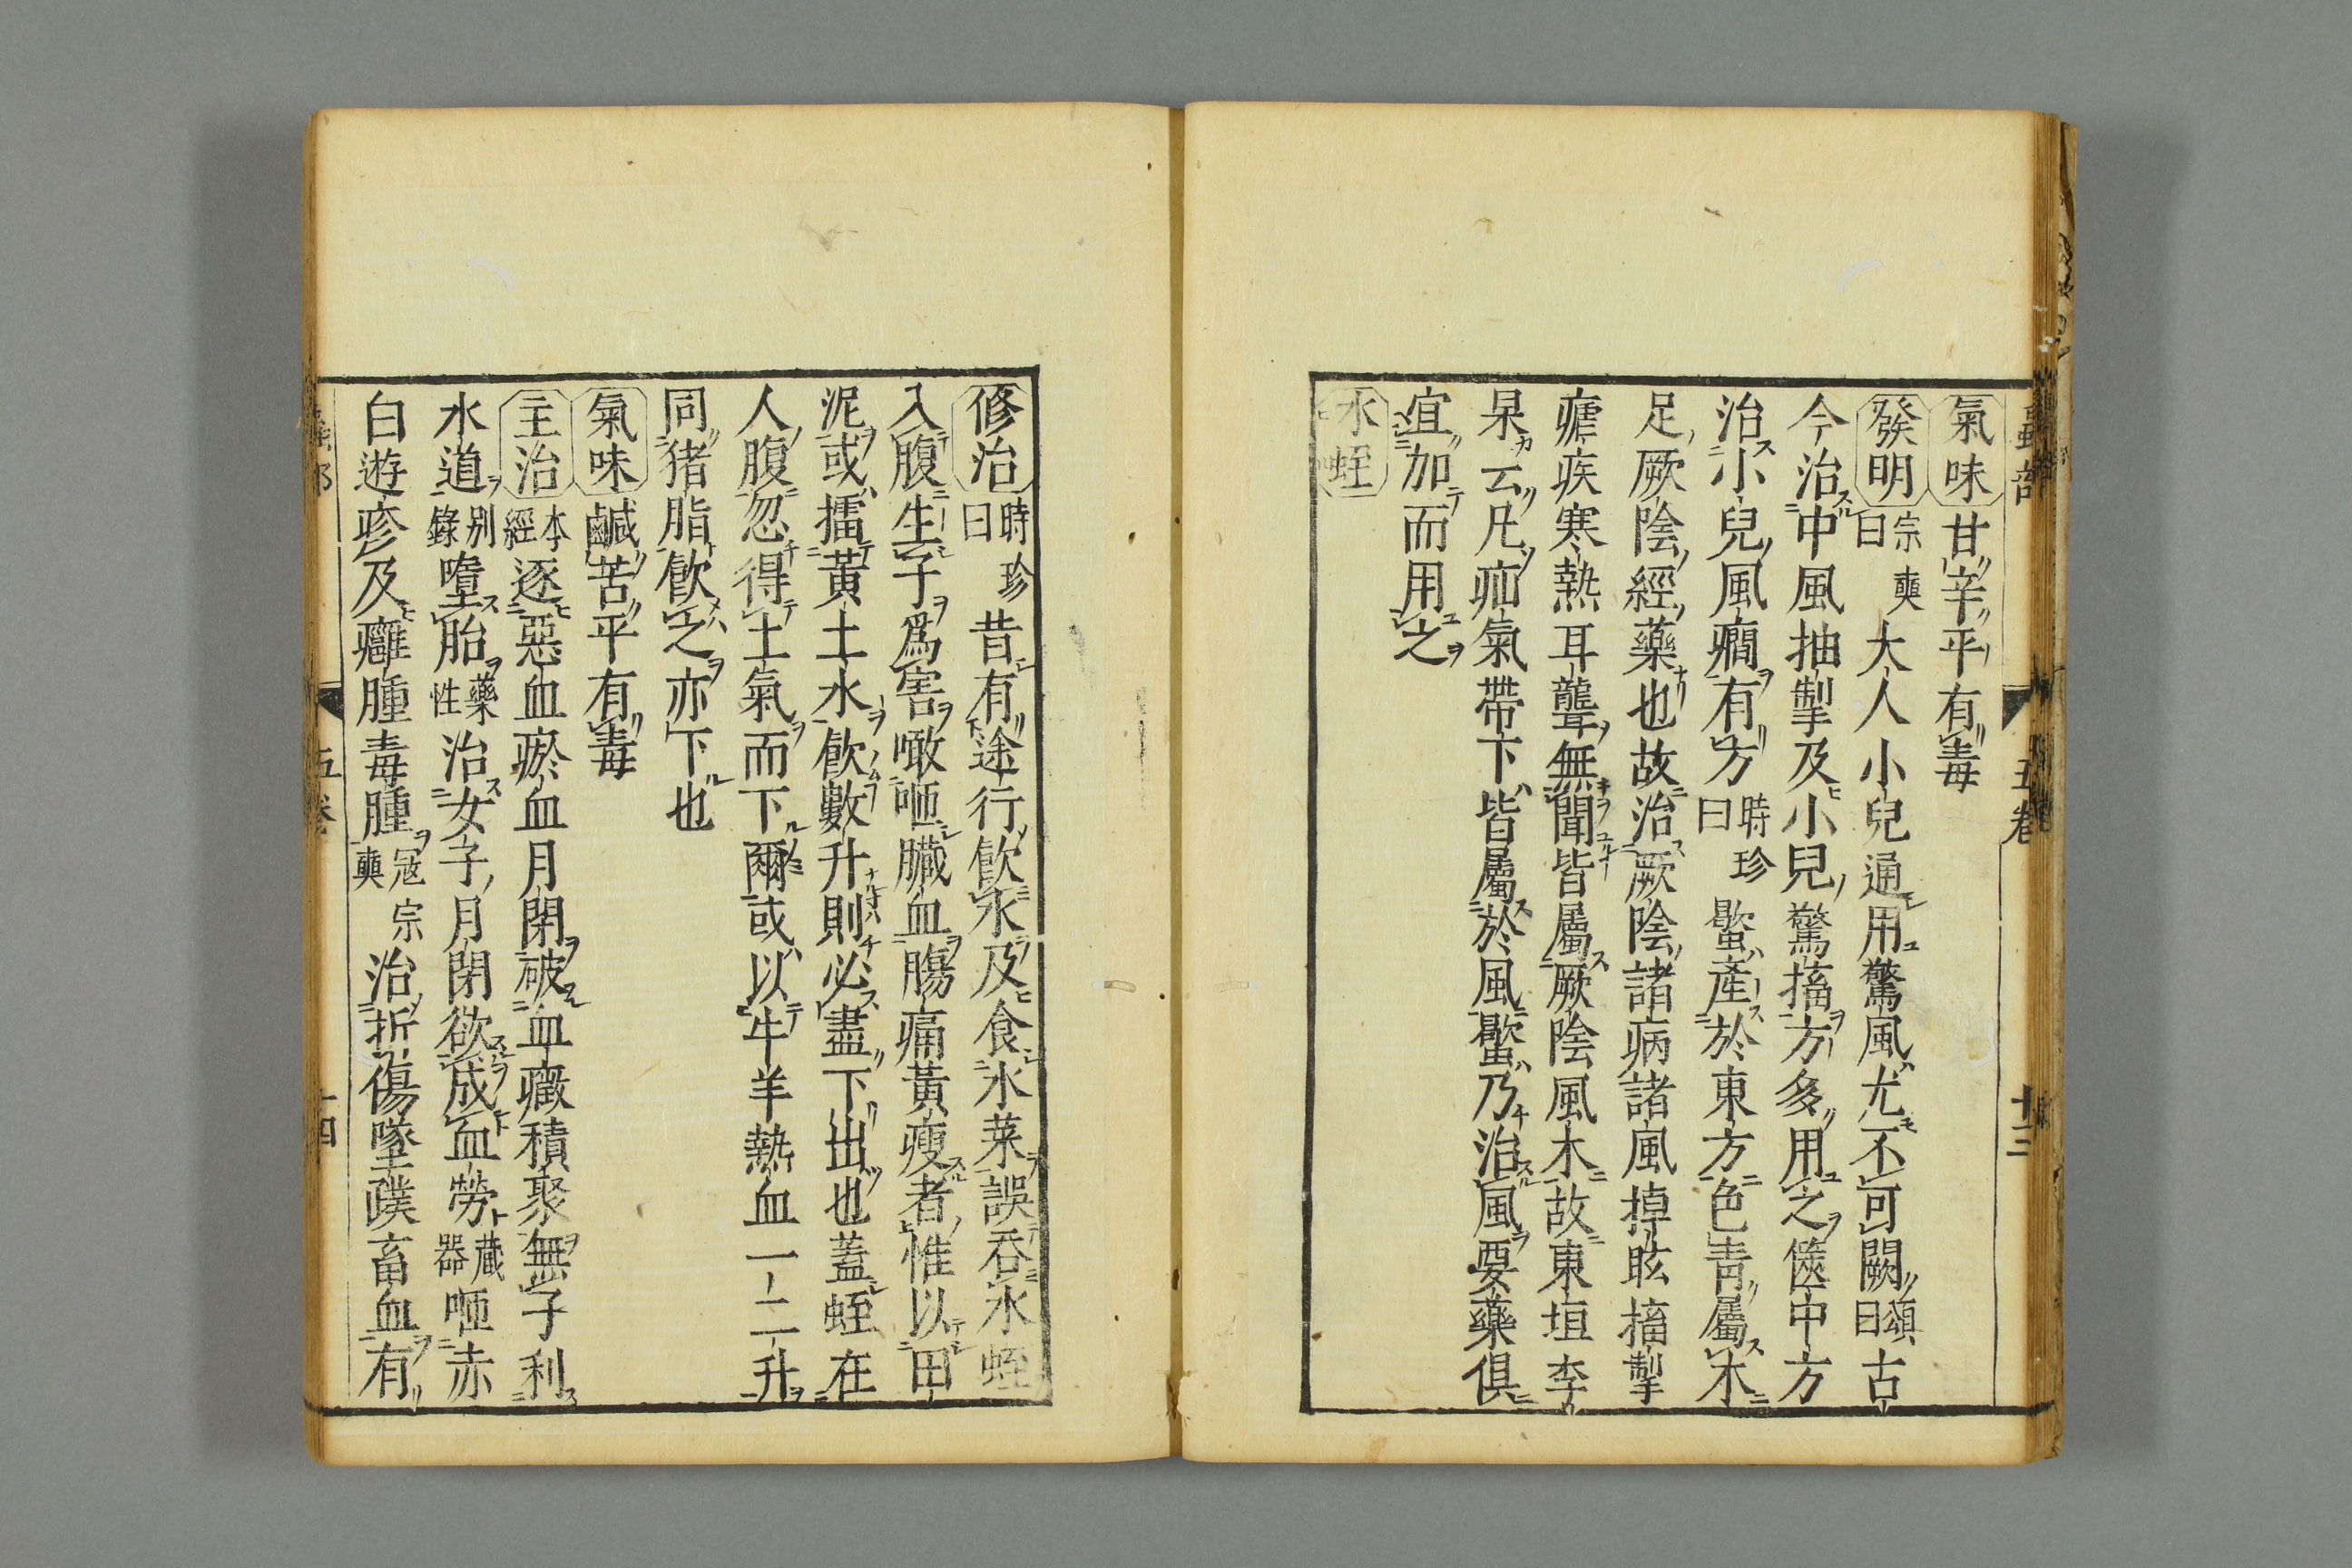 蟲部 五卷 十三
氣味 甘辛平有毒
發明 宗奭曰大人小兒通用驚風尤不可闕頌曰古
今治中風抽掣及小兒驚搐方多用之篋中方
治小兒風癇有方時珍曰蠍產於東方色青屬木
足厥陰經藥也故治厥陰諸病諸風掉眩搐掣
瘧疾寒熱耳聾無聞皆屬厥陰風木故東垣李
杲云凡疝氣帶下皆屬於風蠍乃治風要藥俱
宜加而用之
水蛭
修治 時珍曰昔有途行飲水及食水菜誤吞水蛭
入腹生子為害噉咂臟血腸痛黃瘦者惟以田
泥或擂黃土水飲數升則必盡下出也蓋蛭在
人腹忽得土氣而下爾或以牛羊熱血一二升
同猪脂飲之亦下也
氣味 鹹苦平有毒
主治 逐惡血瘀血月閉破血癥積聚無子利
水道本經 墮胎別錄 治女子月閉欲成血勞藥性 咂赤
白遊疹及癰腫毒腫藏器 治折傷墜蹼畜血有寇宗奭
五卷 十四